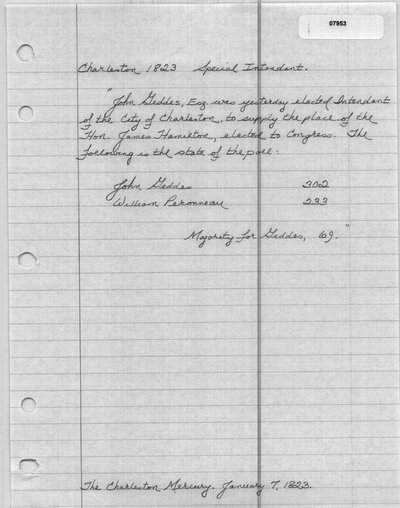 07953
Charleston 1823 Special Intendent.
"John Geddes, Esq. was yesterday elected Intendant
of the City of Charleston, to supply the place of the
Hon. James Hamilton, elected to Congress. The
following is the state of the poll:
John Geddes 302
William Peronneau 233
Majority for Geddes, 69."
The Charleston Mercury. January 7, 1823.